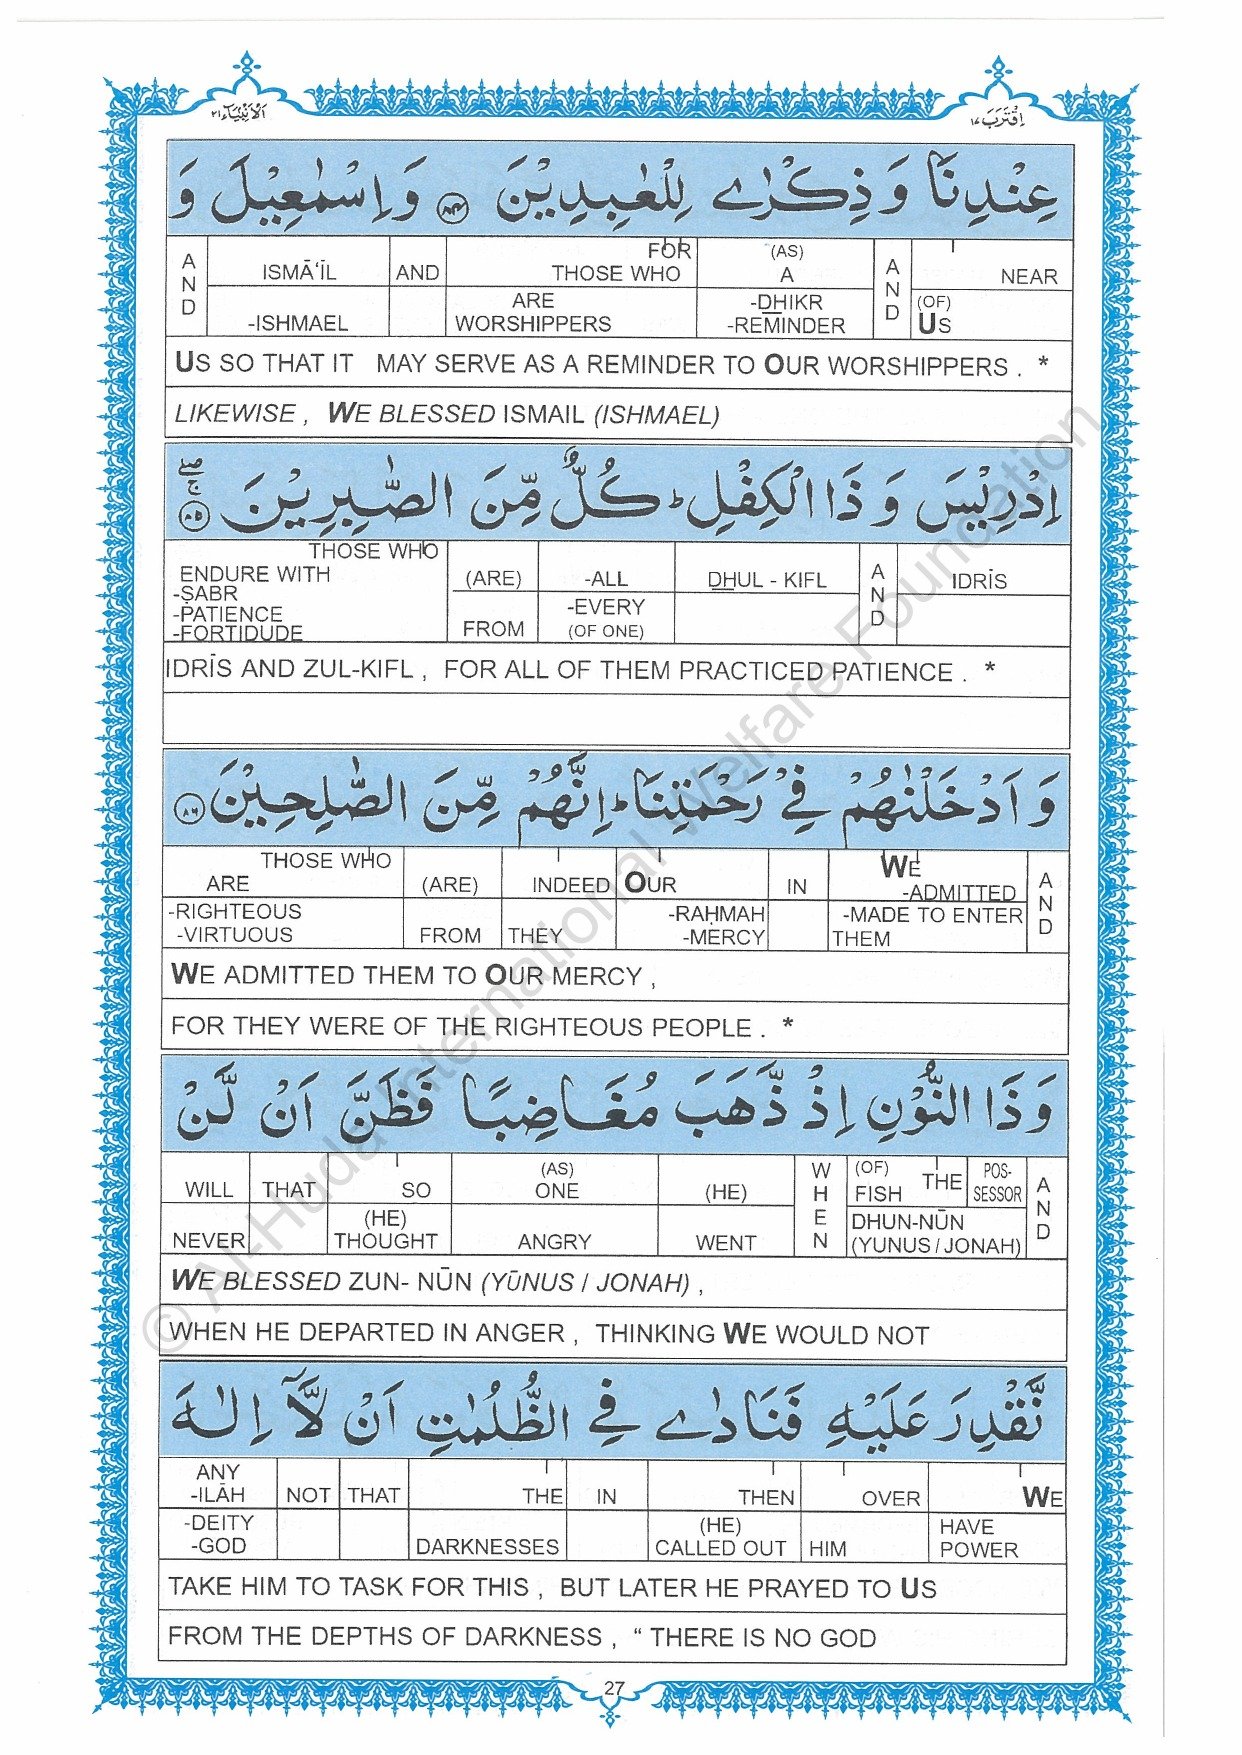 اَلْاَنْبِيَآء ٢١
اِقْتَرَبَ ١٧
عِنْدِنَا وَ ذِكْرٰى لِلْعٰبِدِيْنَ ٨٤ وَ اِسْمٰعِيْلَ وَ
AND ISMĀ‘ĪL AND FOR THOSE WHO (AS) A AND NEAR
-ISHMAEL ARE WORSHIPPERS -DHIKR -REMINDER (OF) US
US SO THAT IT MAY SERVE AS A REMINDER TO OUR WORSHIPPERS . *
LIKEWISE , WE BLESSED ISMAIL (ISHMAEL)
اِدْرِيْسَ وَ ذَا الْكِفْلِ ؕ كُلٌّ مِّنَ الصّٰبِرِيْنَ ٨٥
THOSE WHO ENDURE WITH -SABR -PATIENCE -FORTIDUDE (ARE) -ALL DHUL - KIFL AND IDRĪS
FROM -EVERY (OF ONE)
IDRĪS AND ZUL-KIFL , FOR ALL OF THEM PRACTICED PATIENCE . *
وَ اَدْخَلْنٰهُمْ فِيْ رَحْمَتِنَا ؕ اِنَّهُمْ مِّنَ الصّٰلِحِيْنَ ٨٦
THOSE WHO ARE (ARE) INDEED OUR IN WE -ADMITTED AND
-RIGHTEOUS -VIRTUOUS FROM THEY -RAḤMAH -MERCY -MADE TO ENTER THEM
WE ADMITTED THEM TO OUR MERCY ,
FOR THEY WERE OF THE RIGHTEOUS PEOPLE . *
وَ ذَا النُّوْنِ اِذْ ذَّهَبَ مُغَاضِبًا فَظَنَّ اَنْ لَّنْ
WILL THAT SO (AS) ONE (HE) WHEN (OF) FISH THE POS-SESSOR AND
NEVER (HE) THOUGHT ANGRY WENT DHUN-NŪN (YUNUS / JONAH)
WE BLESSED ZUN- NŪN (YŪNUS / JONAH) ,
WHEN HE DEPARTED IN ANGER , THINKING WE WOULD NOT
نَّقْدِرَ عَلَيْهِ فَنَادٰى فِي الظُّلُمٰتِ اَنْ لَّاۤ اِلٰهَ
ANY -ILĀH NOT THAT THE IN THEN OVER WE
-DEITY -GOD DARKNESSES (HE) CALLED OUT HIM HAVE POWER
TAKE HIM TO TASK FOR THIS , BUT LATER HE PRAYED TO US
FROM THE DEPTHS OF DARKNESS , “ THERE IS NO GOD
27
© Al-Huda International Welfare Foundation